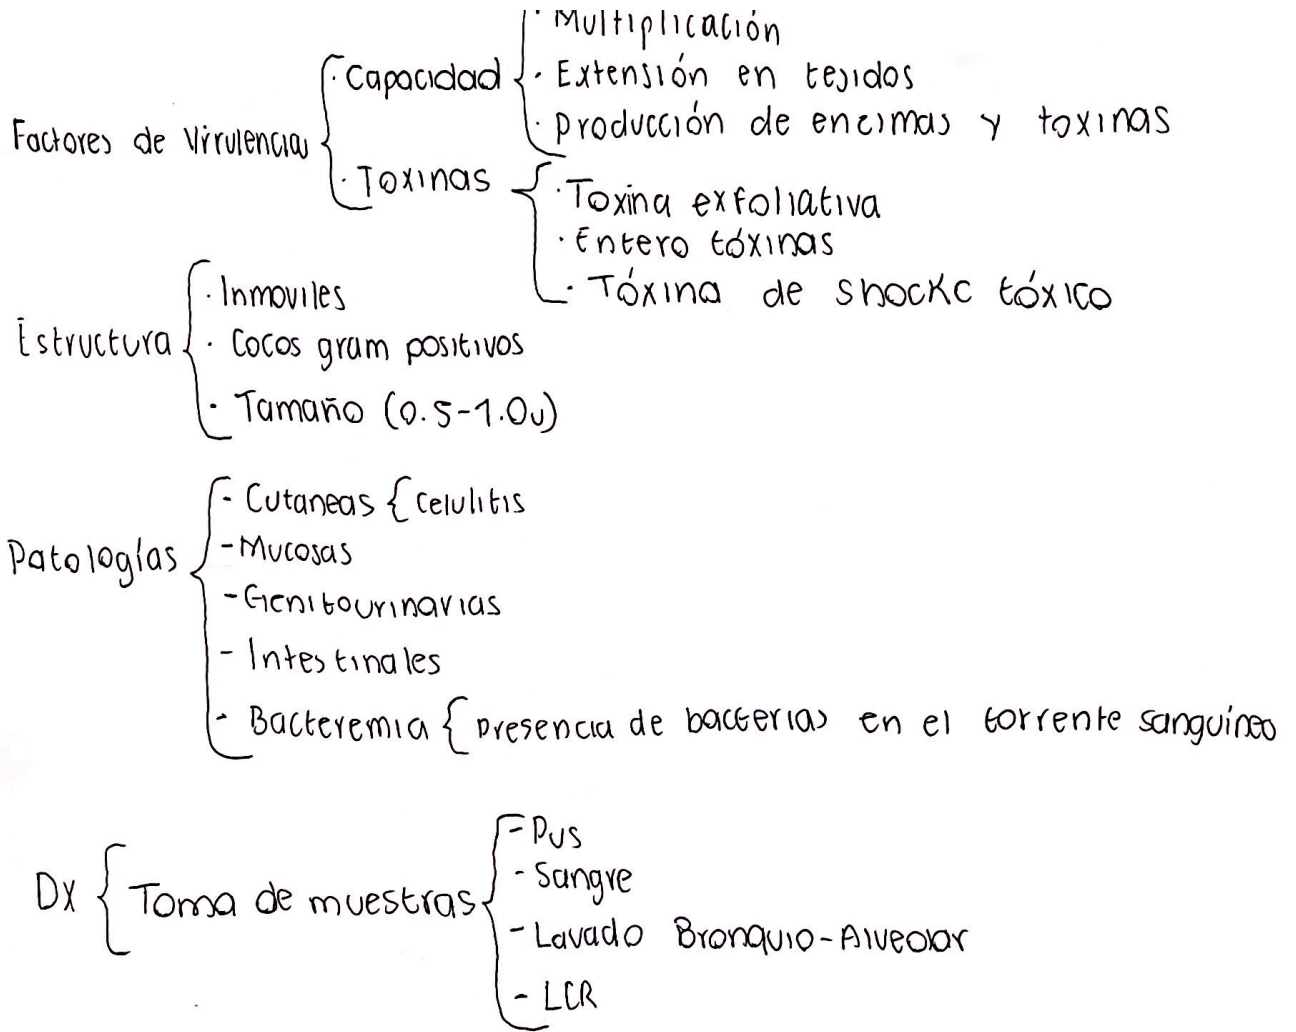 · Multiplicación
Factores de Virulencia { · Capacidad { · Extensión en tejidos
· Producción de encimas y toxinas
· Toxinas { · Toxina exfoliativa
· Entero tóxinas
· Tóxina de shockc tóxico
Estructura { · Inmoviles
· Cocos gram positivos
· Tamaño (0.5-1.0υ)
Patologías { - Cutaneas { Celulitis
- Mucosas
- Genitourinarias
- Intestinales
- Bacteremia { Presencia de bacterias en el torrente sanguíneo
Dx { Toma de muestras { - Pus
- Sangre
- Lavado Bronquio-Alveolar
- LCR